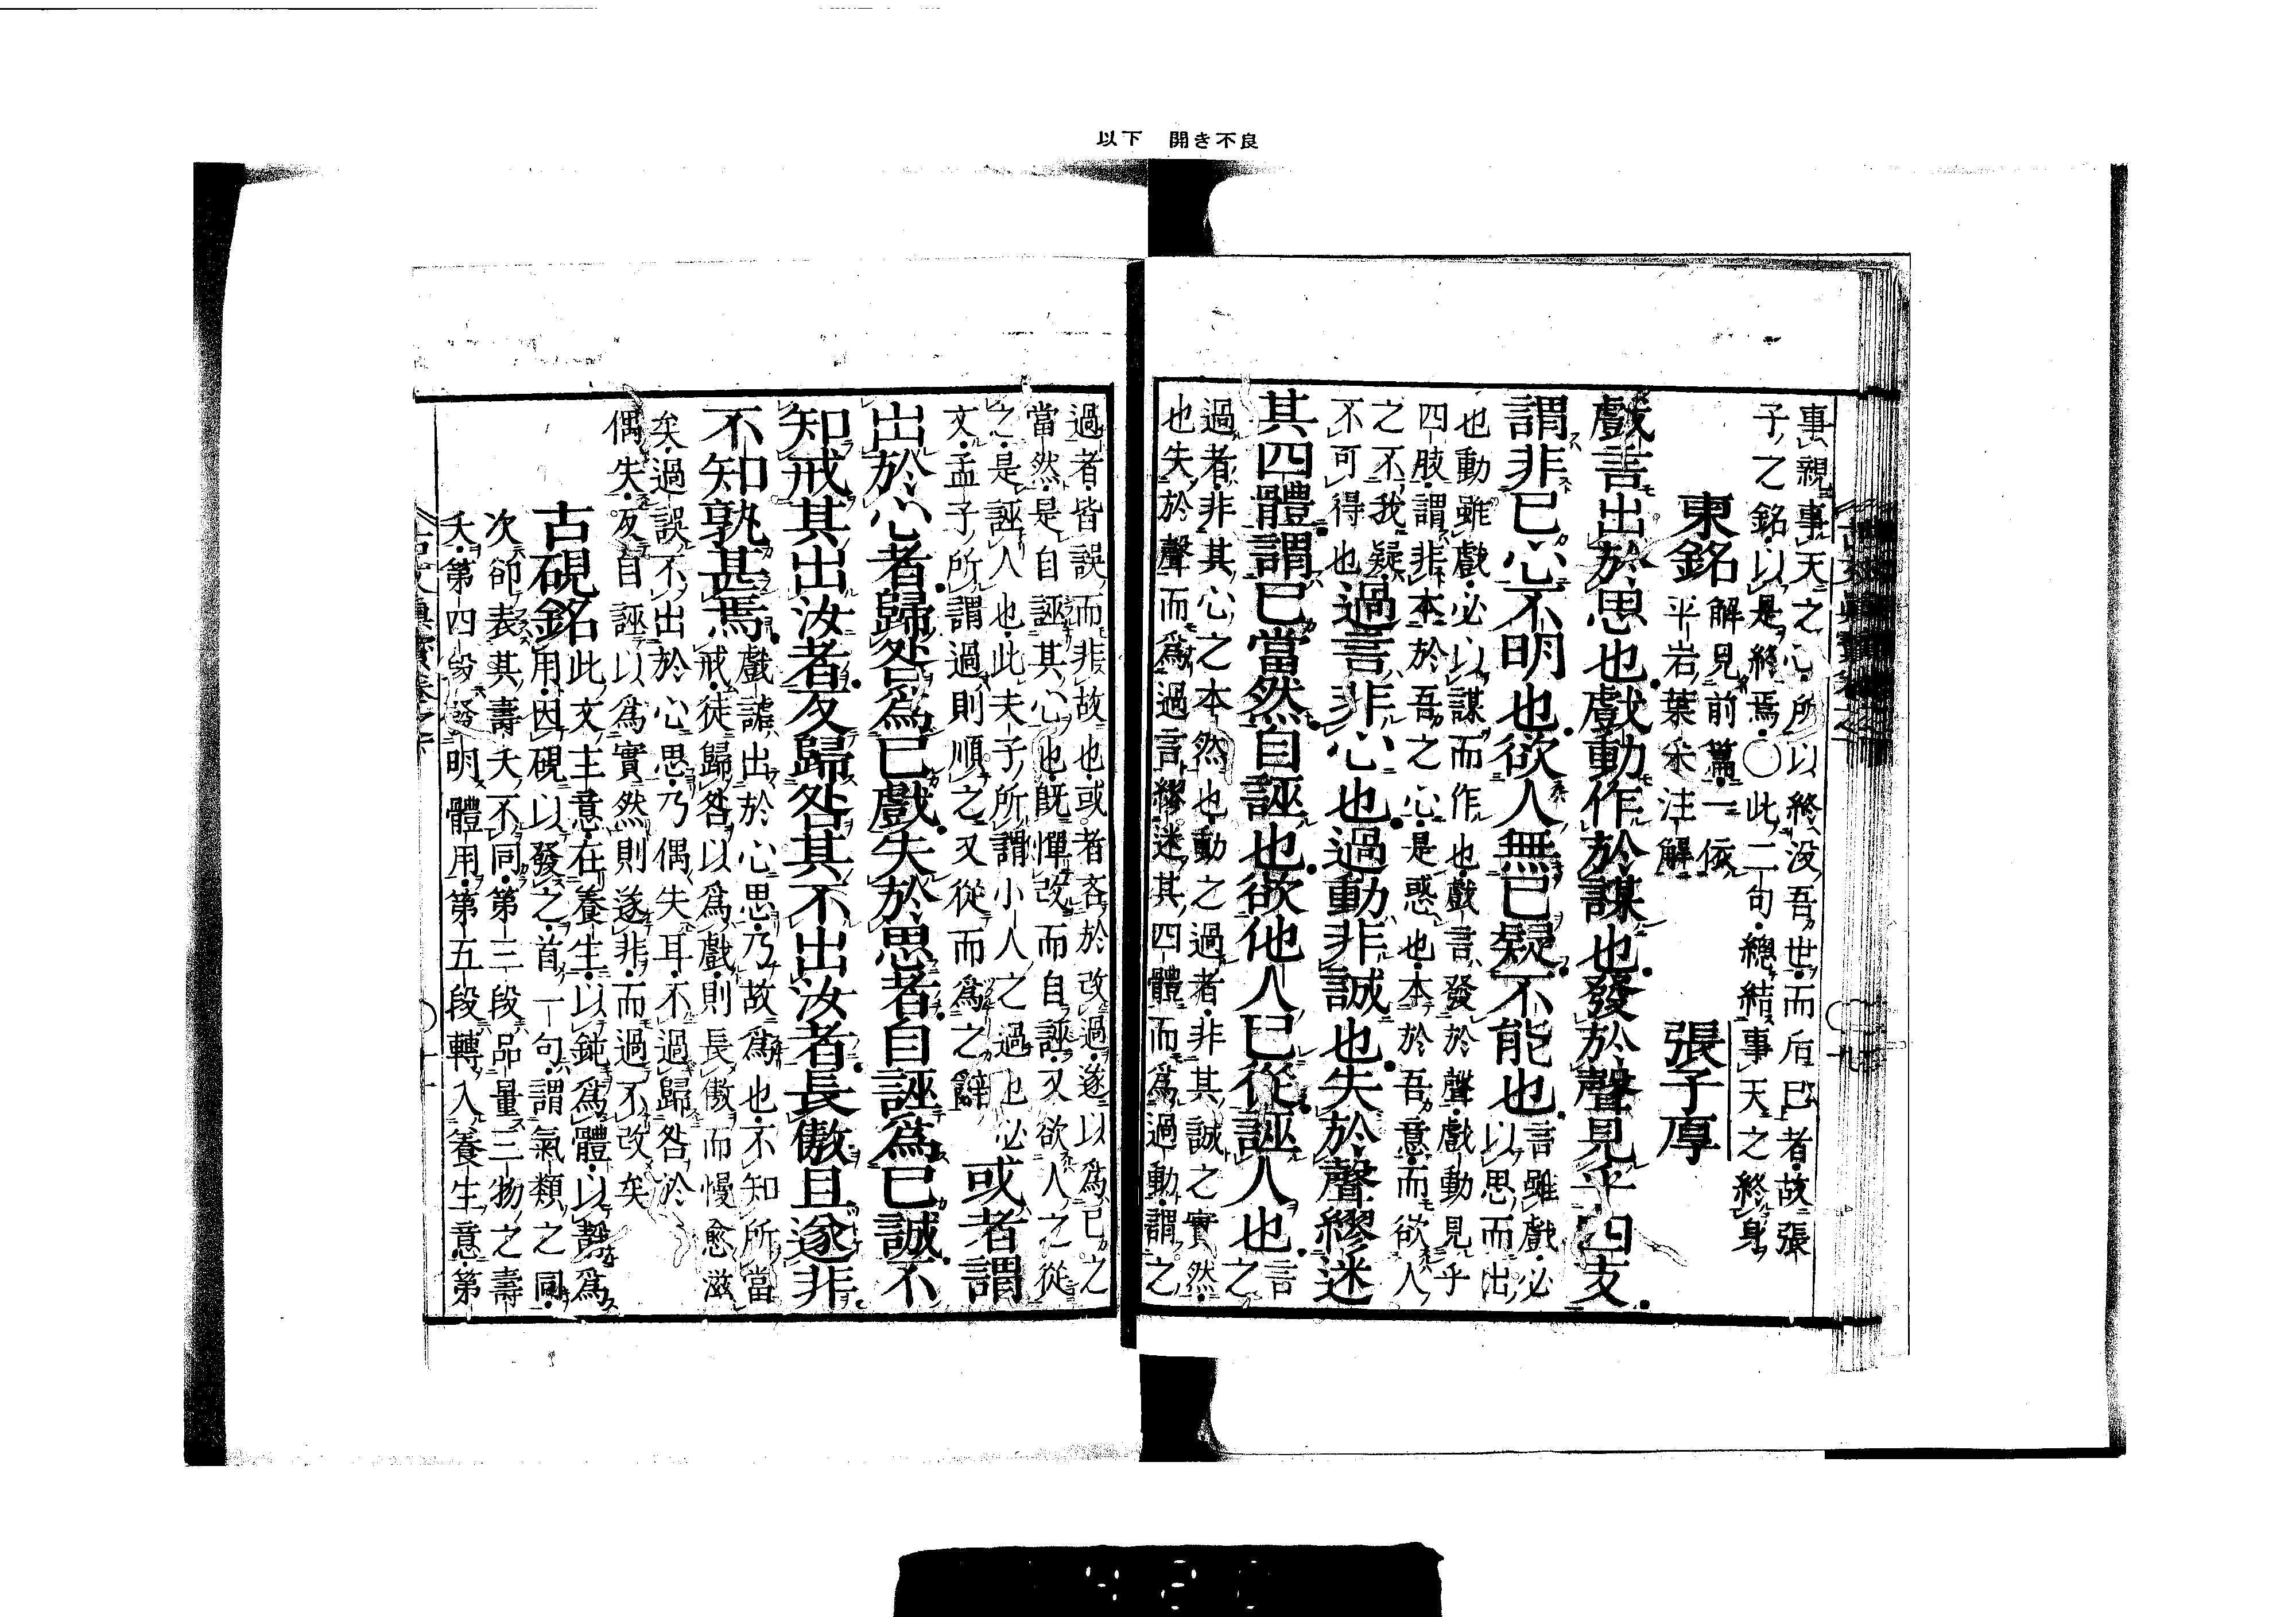 以下 開き不良
事親事天之心所以終没吾世而后已者故張
子之銘以是終焉○此二句總結事天之終身
東銘 解見前篇一依
平岩葉采注解 張子厚
戲言出於思也戲動作於謀也發於聲見乎四支
謂非已心不明也欲人無已疑不能也 言雖戲必
以思而出
也動雖戲必以謀而作也戲言發於聲戲動見乎
四肢謂非本於吾之心是惑也本於吾意而欲人
之不我疑
不可得也 過言非心也過動非誠也失於聲繆迷
其四體謂已當然自誣也欲他人已從誣人也 言
之
過者非其心之本然也動之過者非其誠之實然
也失於聲而爲過言繆迷其四體而爲過動謂之
過者皆誤而非故也或者吝於改過遂以爲已之
當然是自誣其心也既憚改而自誣又欲人之從
之是誣人也此夫子所謂小人之過也必
文孟子所謂過則順之又從而爲之辭 或者謂
出於心者歸咎爲已戲失於思者自誣爲已誠不
知戒其出汝者反歸咎其不出汝者長傲且遂非
不知孰甚焉 戲謔出於心思乃故爲也不知所當
戒徒歸咎以爲戲則長傲而慢愈滋
矣過誤不出於心思乃偶失耳不過歸咎於
偶失反自誣以爲實然則遂非而過不改矣
古硯銘 此文主意在養生以鈍爲體以靜爲
用因硯以發之首一句謂氣類之同
次卻表其壽夭不同第三段品量三物之壽
夭第四段發明體用第五段轉入養生意第